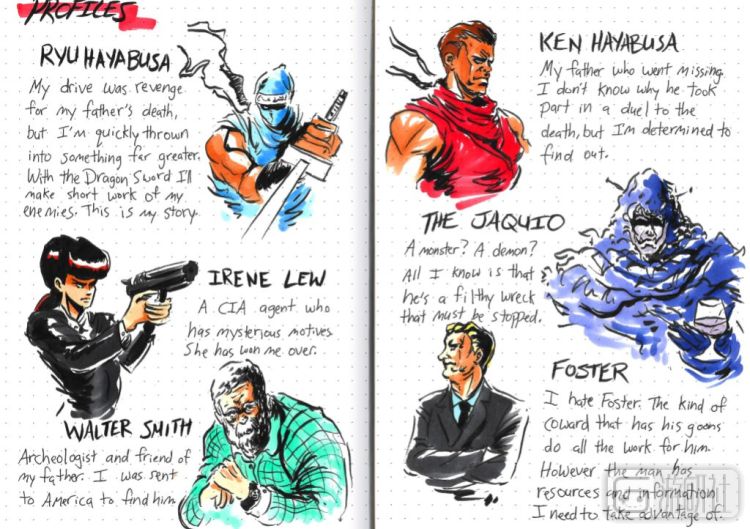 PROFILES
RYU HAYABUSA
My drive was revenge
for my father's death,
but I'm quickly thrown
into something far greater.
With the Dragon Sword I'll
make short work of my
enemies. This is my story.
IRENE LEW
A CIA agent who
has mysterious motives.
She has won me over.
WALTER SMITH
Archeologist and friend of
my father. I was sent
to America to find him.
KEN HAYABUSA
My father who went missing.
I don't know why he took
part in a duel to the
death, but I'm determined to
find out.
THE JAQUIO
A monster? A demon?
All I know is that
he's a filthy wreck
that must be stopped.
FOSTER
I hate Foster. The kind of
coward that has his goons
do all the work for him.
However the man has
resources and information
I need to take advantage of.